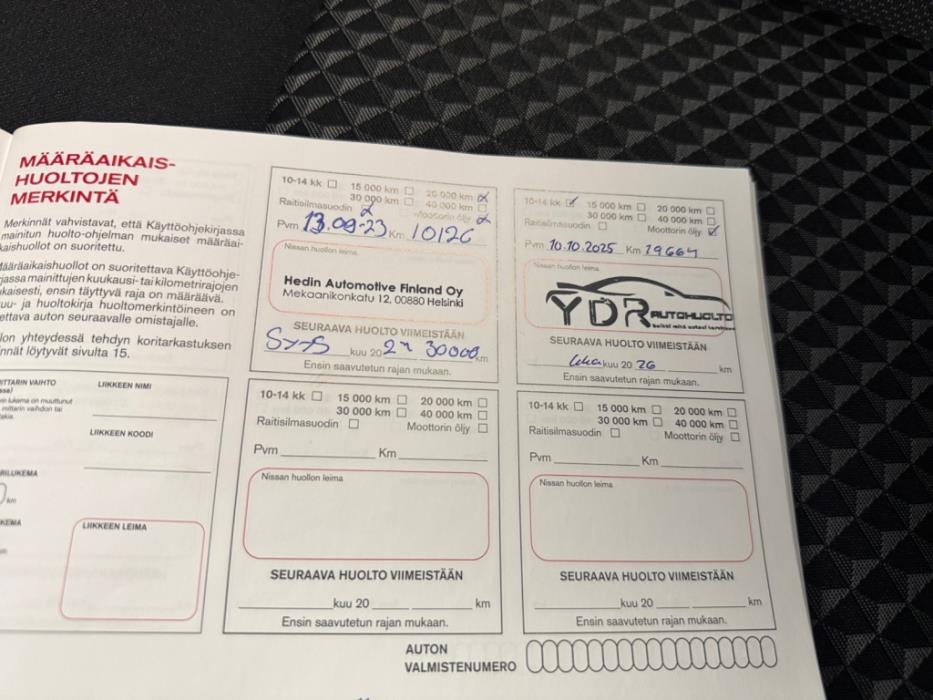 MÄÄRÄAIKAIS-
HUOLTOJEN
MERKINTÄ
Merkinnät vahvistavat, että Käyttöohjekirjassa
mainitun huolto-ohjelman mukaiset määräai-
kaishuollot on suoritettu.
Määräaikaishuollot on suoritettava Käyttöohje-
kirjassa mainittujen kuukausi- tai kilometrirajojen
mukaisesti, ensin täyttyvä raja on määräävä.
uu- ja huoltokirja huoltomerkintöineen on
ettava auton seuraavalle omistajalle.
lon yhteydessä tehdyn koritarkastuksen
innät löytyvät sivulta 15.
MITTARIN VAIHTO
LIIKKEEN NIMI
lukema on muuttunut
mittarin vaihdon tai
LIIKKEEN KOODI
RILUKEMA
km
KEMA
LIIKKEEN LEIMA
10-14 kk 15 000 km 20 000 km
30 000 km 40 000 km
Raitisilmasuodin Moottorin öljy
Pvm 13.09-23 Km 10126
Nissan huollon leima
Hedin Automotive Finland Oy
Mekaanikonkatu 12, 00880 Helsinki
SEURAAVA HUOLTO VIIMEISTÄÄN
kuu 20 30000 km
Ensin saavutetun rajan mukaan.
10-14 kk 15 000 km 20 000 km
30 000 km 40 000 km
Raitisilmasuodin Moottorin öljy
Pvm 10.10.2025 Km 19664
Nissan huollon leima
YDR AUTOHUOLTO
SEURAAVA HUOLTO VIIMEISTÄÄN
Loka kuu 20 26 km
Ensin saavutetun rajan mukaan.
10-14 kk 15 000 km 20 000 km
30 000 km 40 000 km
Raitisilmasuodin Moottorin öljy
Pvm Km
Nissan huollon leima
SEURAAVA HUOLTO VIIMEISTÄÄN
kuu 20 km
Ensin saavutetun rajan mukaan.
10-14 kk 15 000 km 20 000 km
30 000 km 40 000 km
Raitisilmasuodin Moottorin öljy
Pvm Km
Nissan huollon leima
SEURAAVA HUOLTO VIIMEISTÄÄN
kuu 20 km
Ensin saavutetun rajan mukaan.
AUTON
VALMISTENUMERO